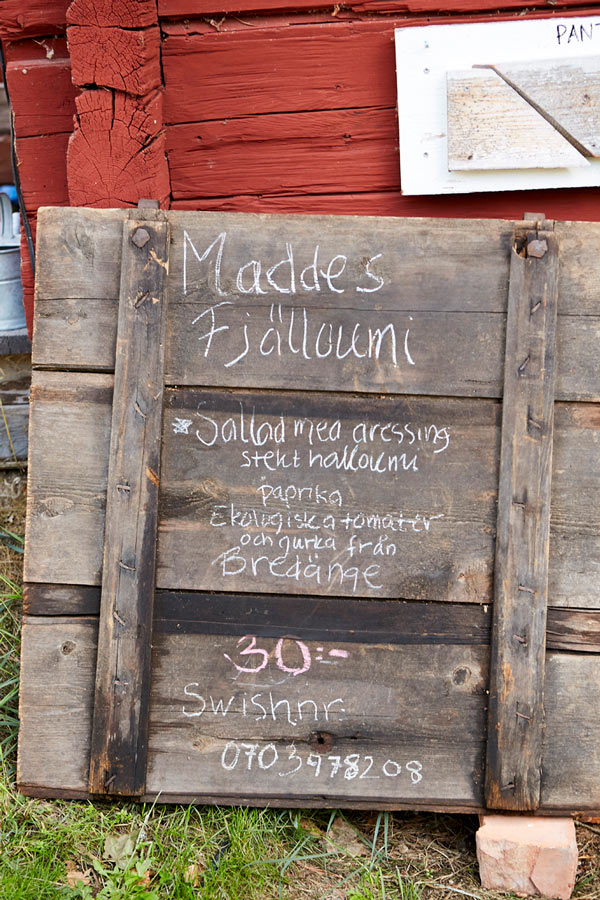 PANT
Maddes
Fjälloumi
* Sallad med dressing
stekt halloumi
paprika
Ekologiska tomater
och gurka från
Bredänge
30:-
Swishnr:
0703978208